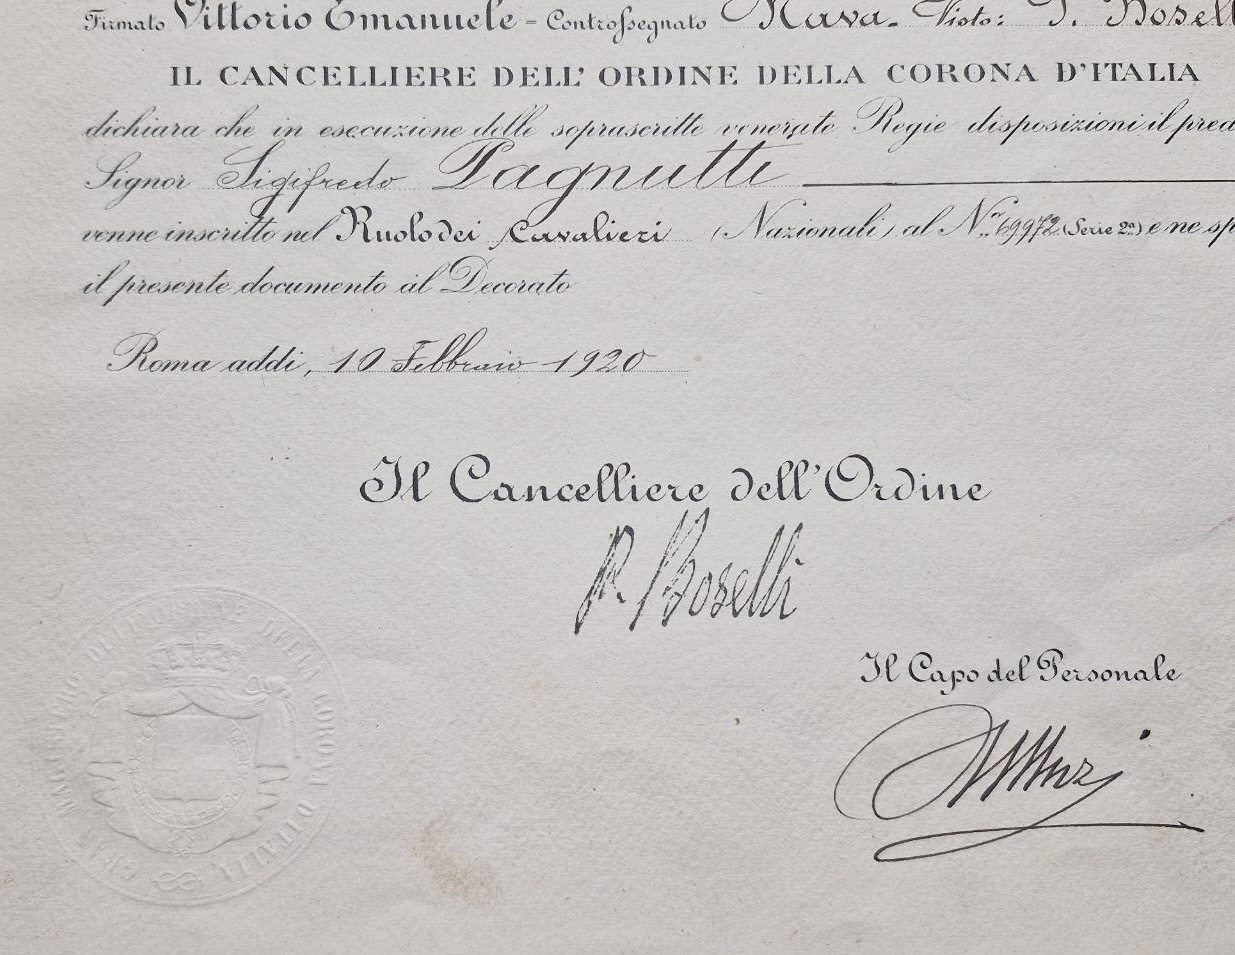 Firmato Vittorio Emanuele = Controssegnato Nava. Visto: P. Bosell
IL CANCELLIERE DELL' ORDINE DELLA CORONA D'ITALIA
dichiara che in esecuzione delle soprascritte venerate Regie disposizioni il pred
Signor Sigifredo Pagnutti
venne inscritto nel Ruolo dei Cavalieri (Nazionali) al N.° 69972 (Serie 2ª) e ne sp
il presente documento al Decorato
Roma addi, 10 Febbraio 1920
Il Cancelliere dell'Ordine
P. Boselli
Il Capo del Personale
GRAN MAGISTERO DELL'ORDINE DELLA CORONA D'ITALIA